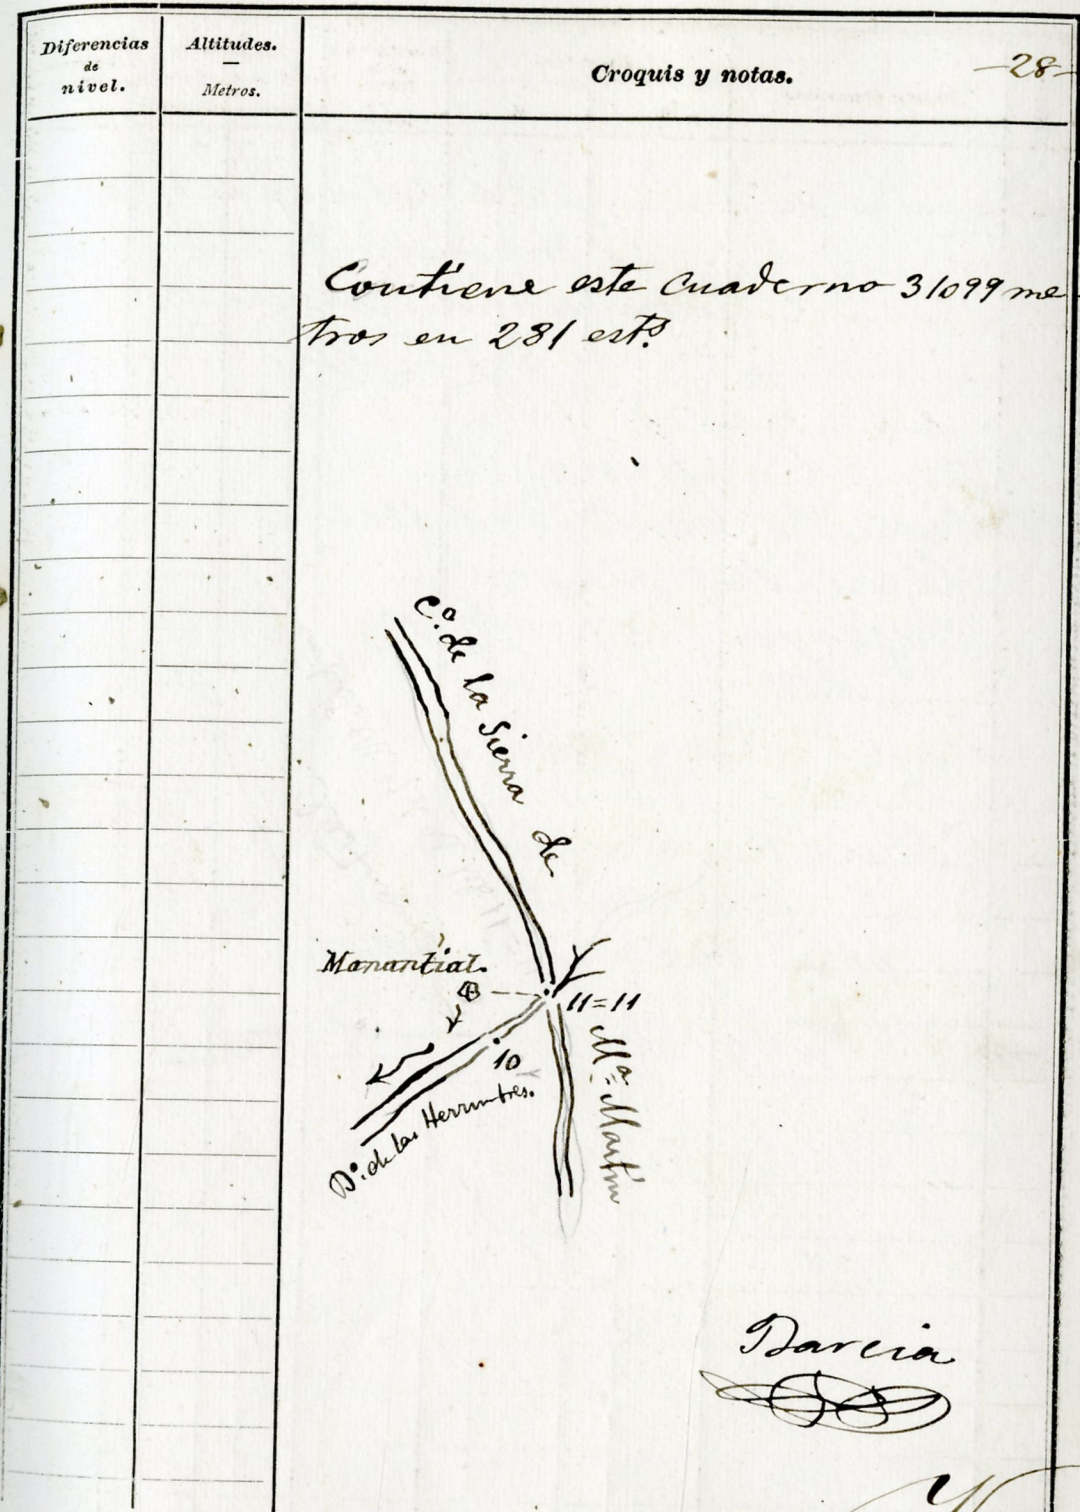 Diferencias
de
nivel.
Altitudes.
Metros.
Croquis y notas.
-28-
Contiene este cuaderno 31099 me
tros en 281 est.s
C.o de la Sierra de
M.a Martín
Manantial.
11=11
10
D.o de las Herrumbres.
Barcia